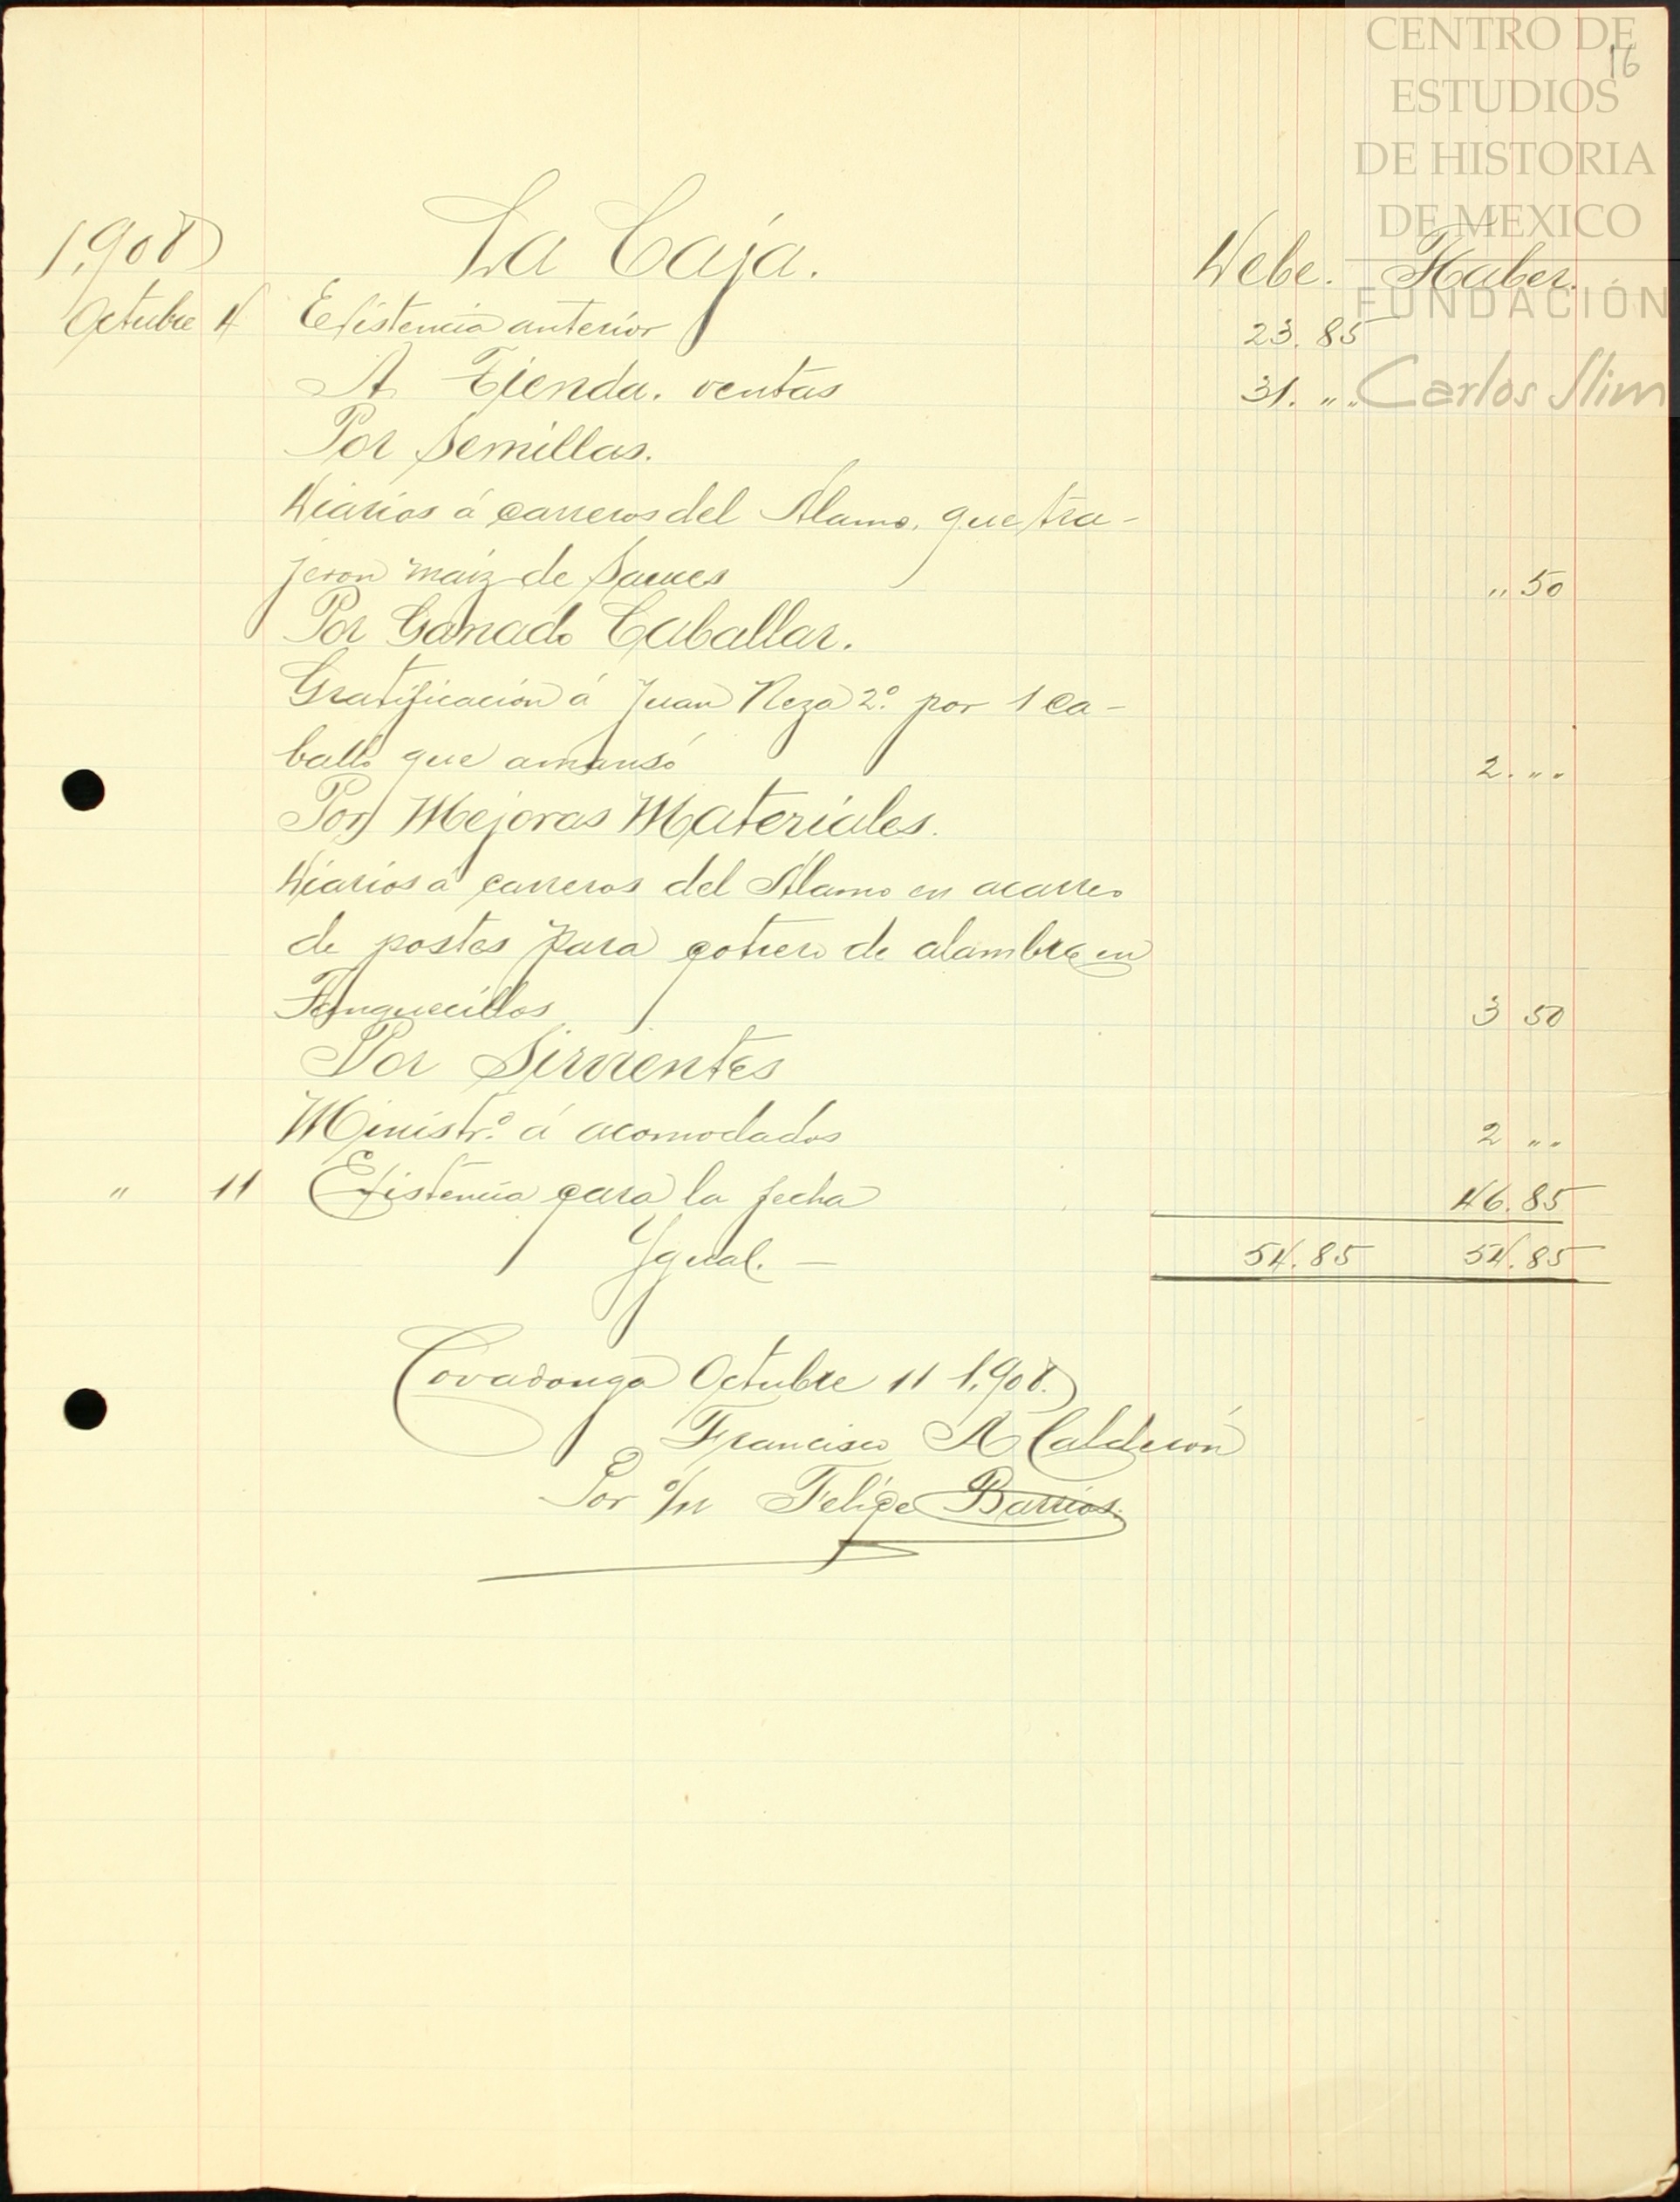 CENTRO DE
ESTUDIOS
DE HISTORIA
DE MEXICO
FUNDACIÓN
Carlos Slim
16
1,908 La Caja. Debe. Haber.
Octubre 4 Existencia anterior 23.85
A Tienda. ventas 31. " "
Por Semillas.
Diarios á carreros del Alamo, que tra-
jeron maiz de Sauces " 50
Por Ganado Caballar.
Gratificación á Juan Reza 2º por 1 ca-
ballo que amansó 2. " "
Por Mejoras Materiales.
Diarios á carreros del Alamo en acarreo
de postes para potrero de alambre en
Tanquecillos 3 50
Por Sirvientes
Ministr.º á acomodados 2 " "
" 11 Existencia para la fecha 46.85
Ygual. — 54.85 54.85
Covadonga Octubre 11 1,908.
Francisco A Calderón
Por o/n Felipe Barrios.